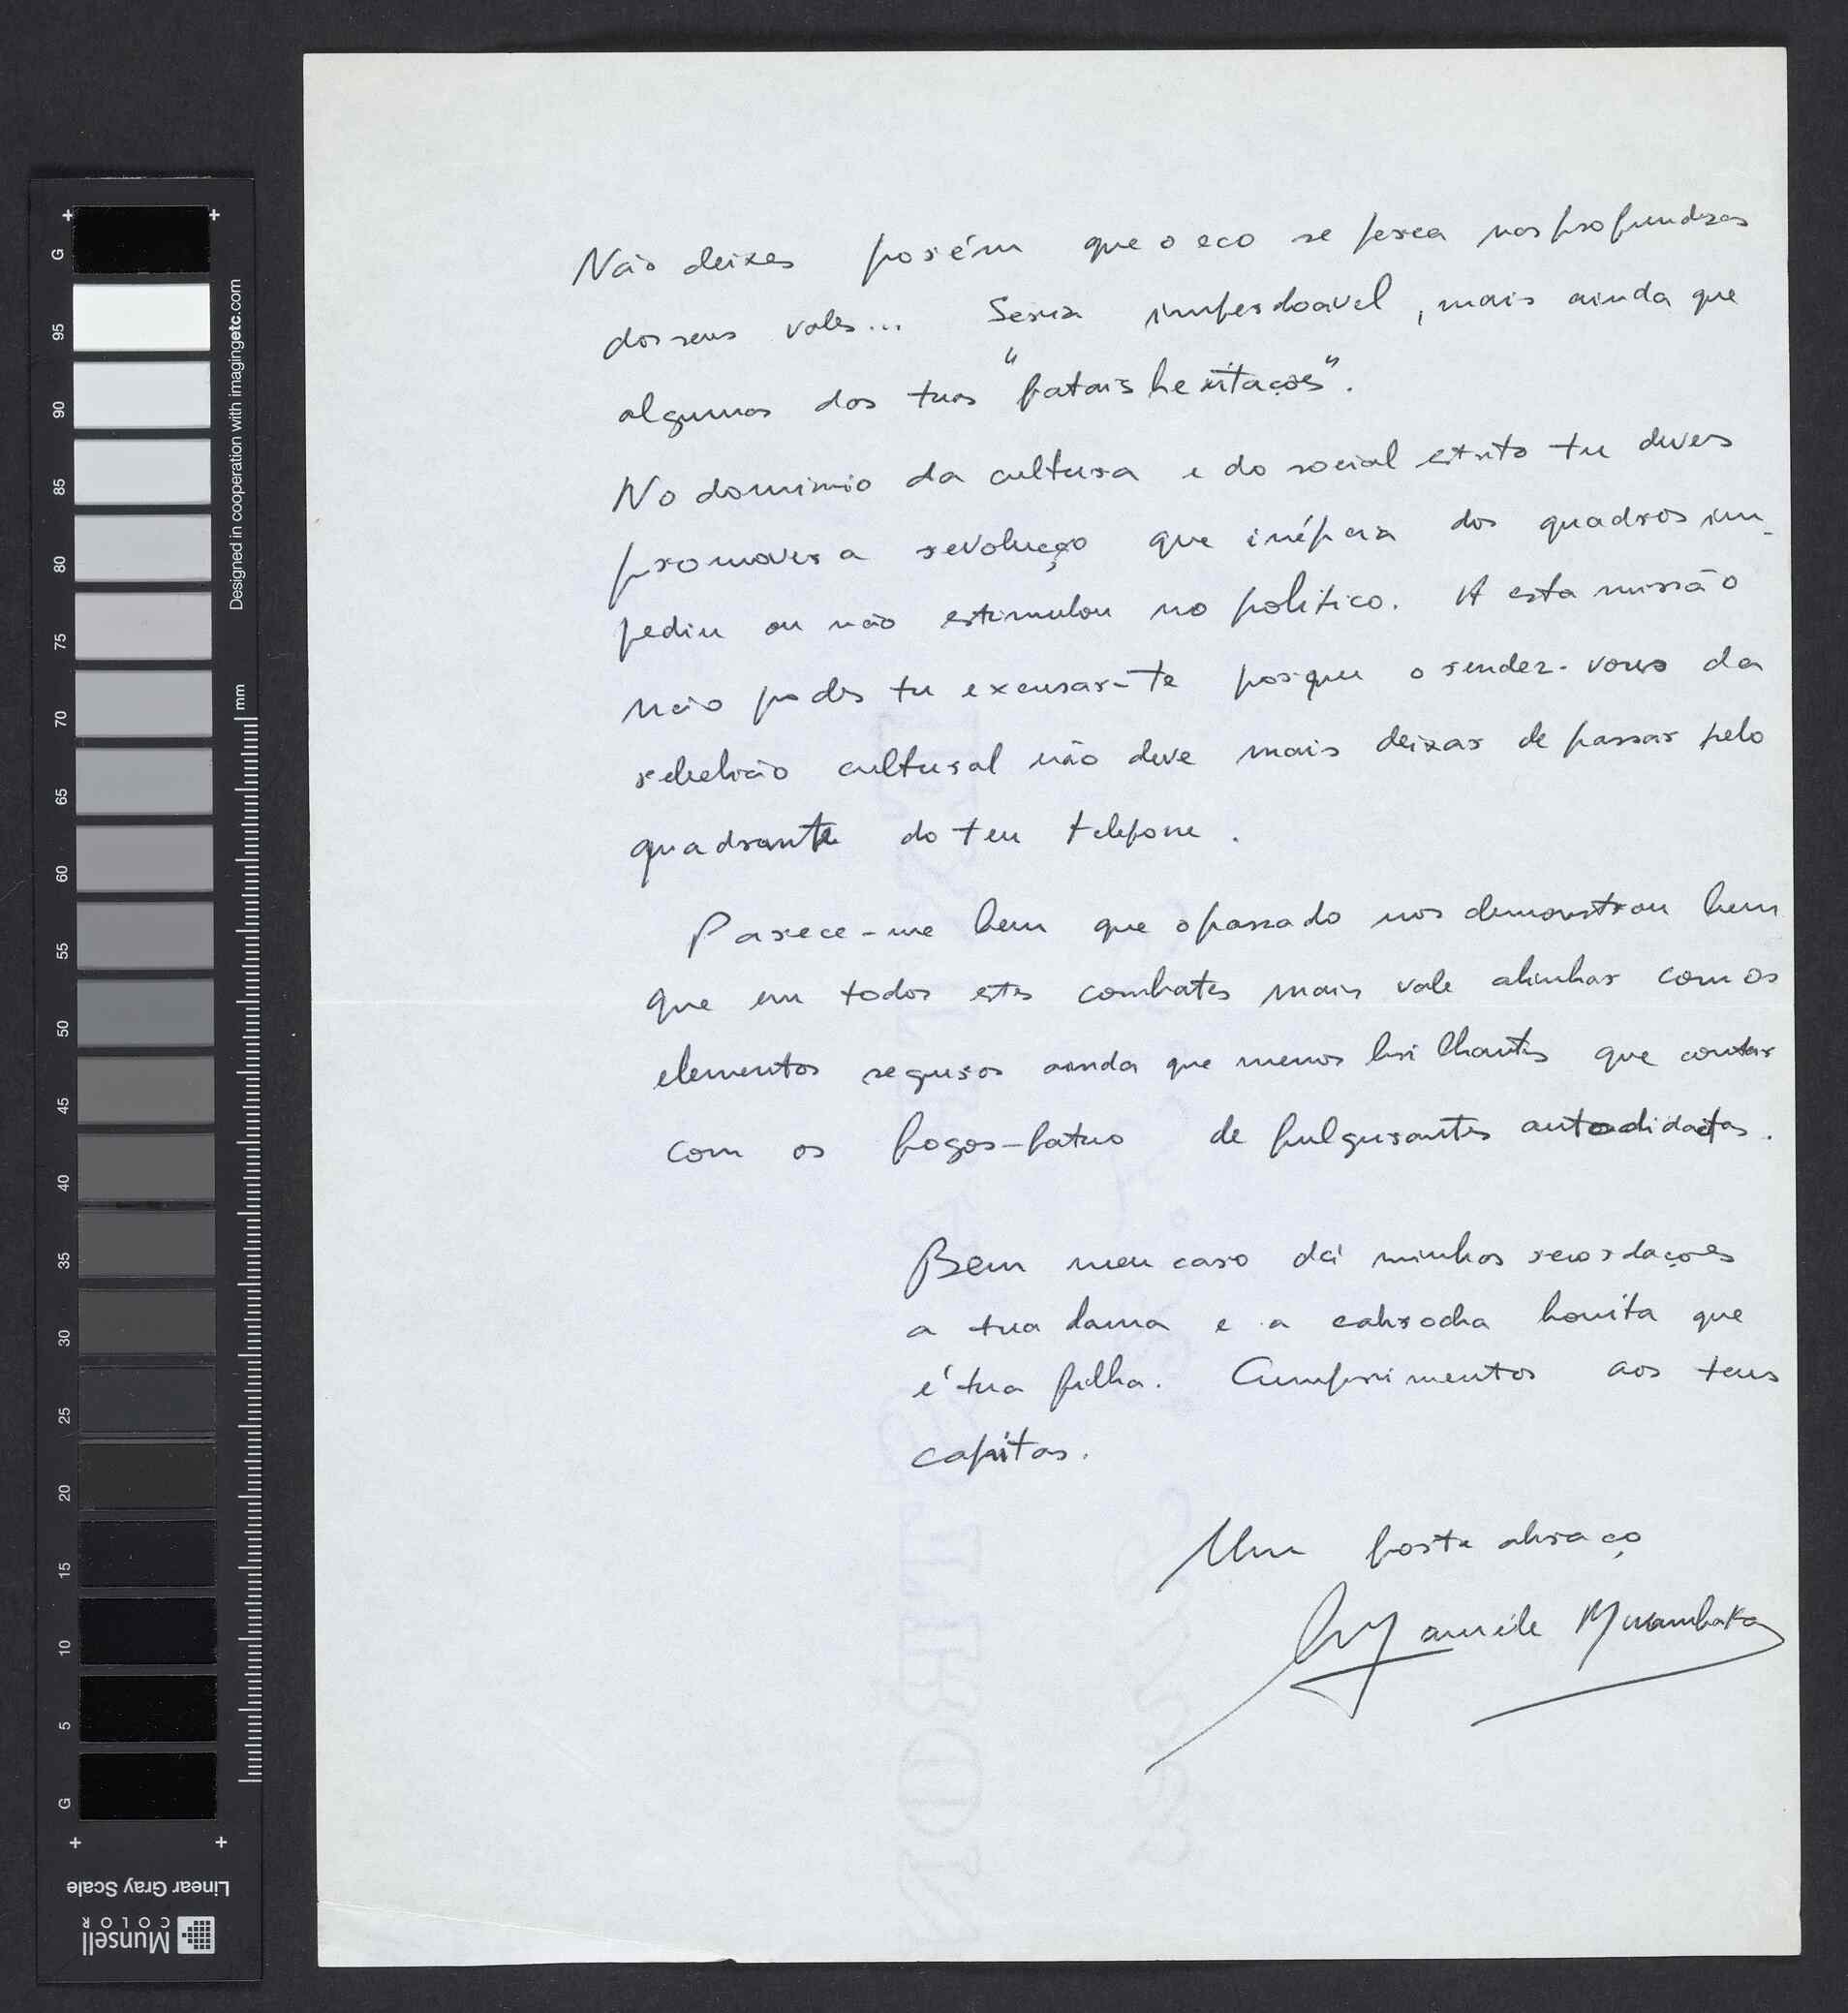 Não deixes porém que o eco se perca nas profundezas
dos seus vales... Seria imperdoavel, mais ainda que
algumas das tuas "fatais hesitações".
No dominio da cultura e do social estrito tu deves
promover a revolução que inépcia dos quadros im-
pediu ou não estimulou no politico. A esta missão
não podes tu excusar-te porque o rendez-vous da
rebelião cultural não deve mais deixar de passar pelo
quadrante do teu telefone.
Parece-me bem que o passado nos demonstrou bem
que em todos estes combates mais vale alinhar com os
elementos seguros ainda que menos brilhantes que contar
com os fogos-fatuo de fulgurantes autodidactas.
Bem meu caro dá minhas recordações
a tua dama e a cabrocha bonita que
é tua filha. Cumprimentos aos teus
capitas.
Um forte abraço
G
95
90
85
80
75
70
65
60
55
50
45
40
35
30
25
20
15
10
5
G
Designed in cooperation with imagingetc.com
mm
Linear Gray Scale
Munsell
COLOR